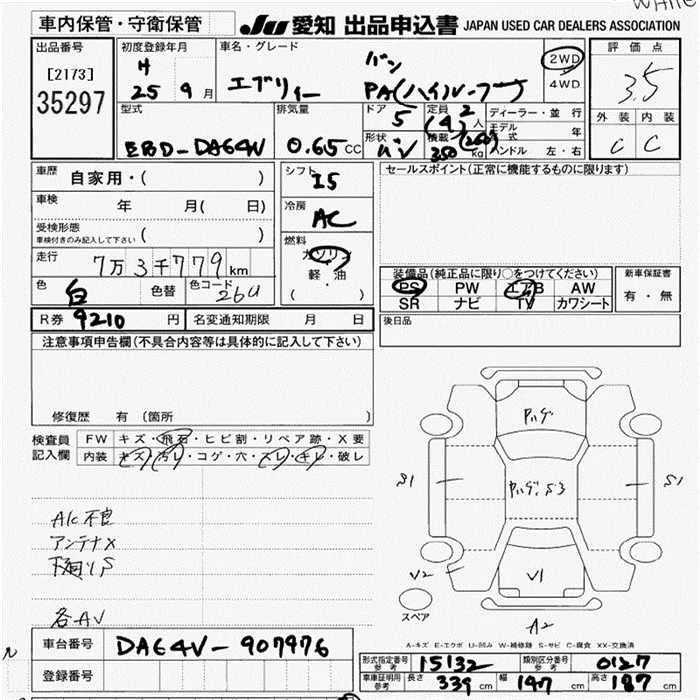 車内保管・守衛保管
JU 愛知 出品申込書 JAPAN USED CAR DEALERS ASSOCIATION
出品番号 初度登録年月 車名・グレード 評価点
[2173] H バン 2WD 3.5
35297 25 9月 エブリィ PA(ハイルーフ) 4WD
外装 内装
型式 排気量 ドア 定員 2 ディーラー・並行
5 (4)人 モデル年式 年
C C
EBD-DA64V 0.65CC 形状 バン 積載 350 (260) kg ハンドル 左・右
車歴 自家用・( ) シフト I5 セールスポイント(正常に機能するものに限ります)
車検 年 月( 日) 冷房
AC
受検形態
車検付きのみ記入して下さい ( ) 燃料
走行 7万3千779km ガソリン
軽・油
( )
装備品(純正品に限り○をつけてください) 新車保証書
色 白 色替 色コード 26U
PS PW エアB AW 有・無
SR ナビ TV カワシート
R券 9210 円 名変通知期限 月 日 後日品
注意事項申告欄(不具合内容等は具体的に記入して下さい)
修復歴 有 〔箇所 〕
検査員 FW キズ・飛石・ヒビ割・リペア跡・X要
記入欄 内装 キズ・汚レ・コゲ・穴・スレ・キレ・破レ
ハゲ
S1 ハゲ、S3 S1
A/C不良
アンテナX
下廻りS
V2 V1
スペア
各AV
A2
A-キズ E-エクボ U-凹み W-補修跡 S-サビ C-腐食 XX-交換済
車台番号 DA64V-907976
登録番号
形式指定番号 参考 15132 類別区分番号 参考 0127
車庫証明用 参考 長さ 339cm 幅 147cm 高さ 187cm